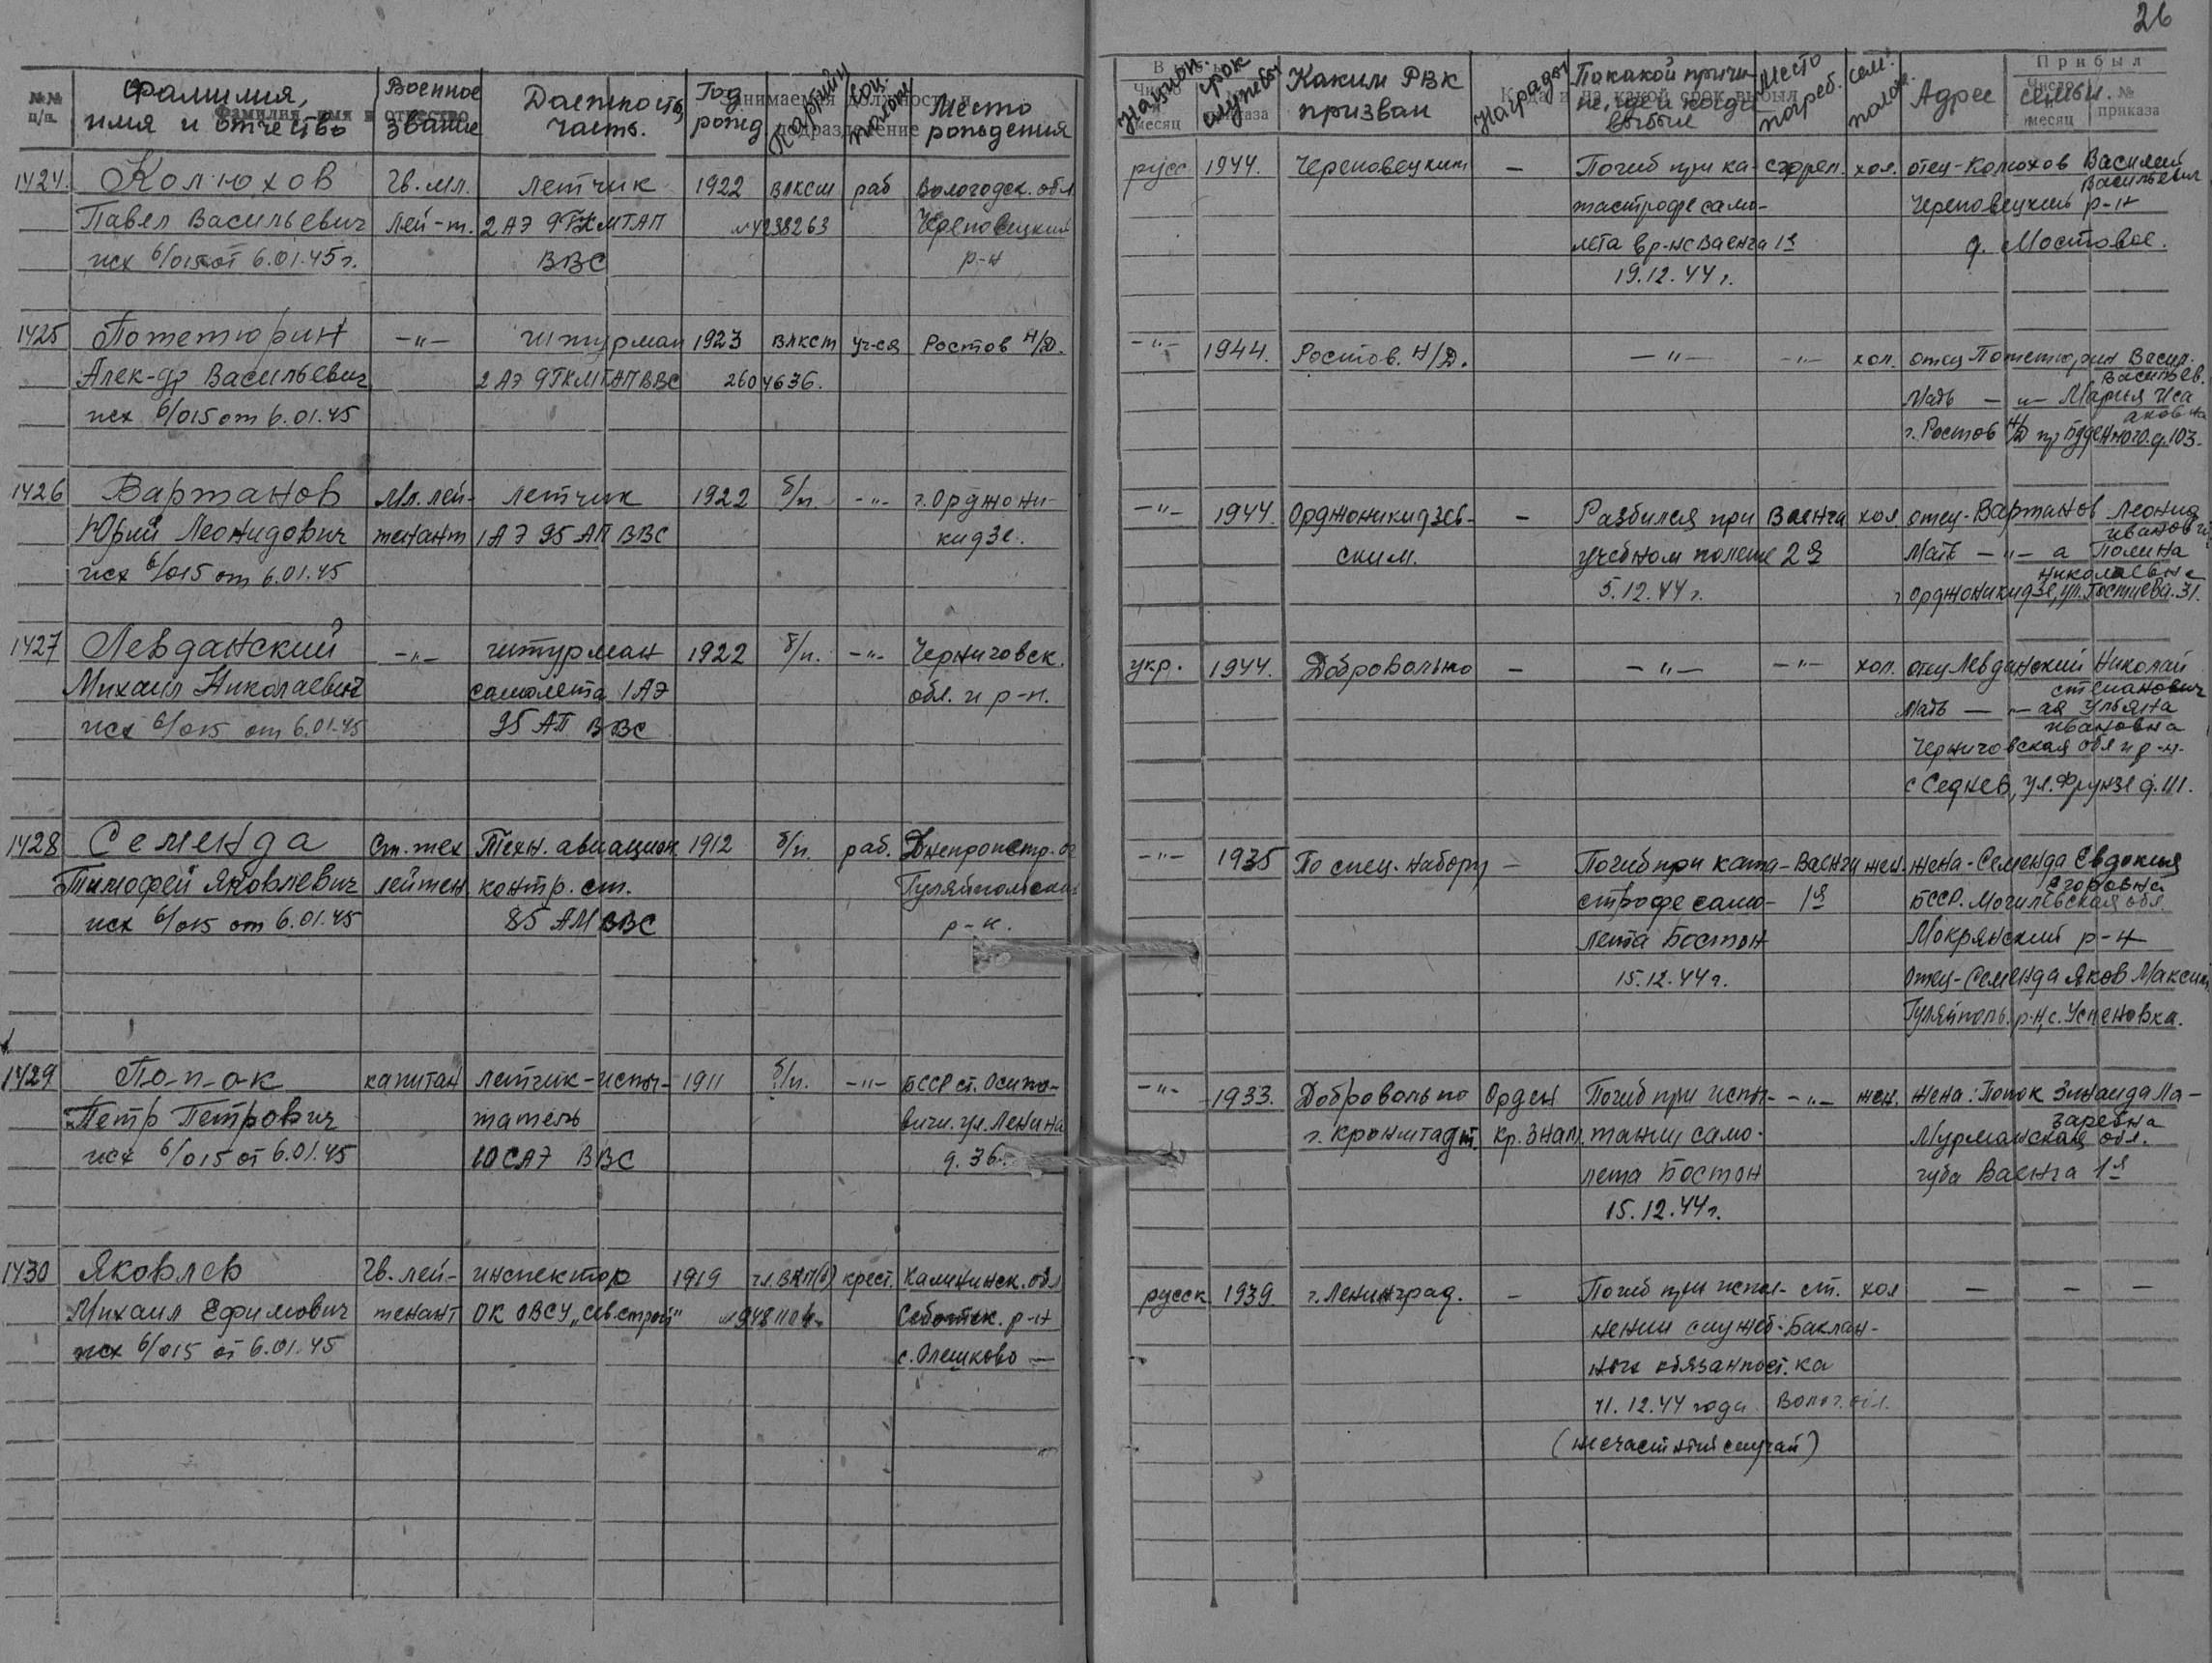 26
Фамилия, имя и отчество
Военное звание
Должность, часть.
Год рожд
Партийн
соц. полож
Место рождения
Национ.
срок службы
Каким РВК призван
Награды
По какой причине, где и когда выбыл
Место погреб.
сем. полож.
Адрес семьи.
1424. Колюхов Гв. мл. летчик 1922 ВЛКСМ раб Вологодск. обл
Павел Васильевич лей-т. 2 АЭ 9ГКМТАП №4238263 Череповецкий
исх 6/015 от 6.01.45 г. ВВС р-н
русс 1944. Череповецким — Погиб при ка- сгорел. хол. отец-Колюхов Василий
Васильевич
тастрофе само- Череповецкий р-н
лета в р-не Ваенга 1я д. Мостовое.
19.12.44 г.
1425 Пометюрин —"— штурман 1923 ВЛКСМ уч-ся Ростов Н/Д.
Алек-др Васильевич 2 АЭ 9ГКМТАП ВВС 2604636.
исх 6/015 от 6.01.45
—"— 1944. Ростов. Н/Д. —"— —"— хол. отец Пометюрин Васил.
Васильев.
Мать —"— Мария Иса
аковна
г. Ростов Н/Д пр Буденного. д. 103-
1426 Вартанов Мл. лей- летчик 1922 б/п. —"— г. Орджони-
Юрий Леонидович тенант 1 АЭ 95 АП ВВС кидзе.
исх 6/015 от 6.01.45
—"— 1944. Орджоникидзев- — Разбился при Ваенга хол отец-Вартанов Леонид
Иванович
ским. учебном полете 2я Мать —"— а Полина
Николаевна
5.12.44 г. г Орджоникидзе, ул. Гостиева. 31.
1427 Левданский —"— штурман 1922 б/п. —"— Черниговск.
Михаил Николаевич самолета 1 АЭ обл. и р-н.
исх 6/015 от 6.01.45 95 АП ВВС
укр. 1944. Добровольно — —"— —"— хол. отец Левданский Николай
Степанович
Мать —"— ая Ульяна
Ивановна
Черниговская обл и р-н.
с Седнев, ул. Фрунзе д. 111.
1428 Семенда Ст. тех Техн. авиацион 1912 б/п. раб. Днепропетр. об
Тимофей Яковлевич лейтен. контр. ст. Гуляйпольский
исх 6/015 от 6.01.45 85 АМ ВВС р-н.
—"— 1935 По спец. набору — Погиб при ката- Ваенга жен. жена-Семенда Евдокия
Егоровна
строфе само- 1я БССР. Могилевская обл.
лета Бостон Мокрянский р-н
15.12.44 г. Отец-Семенда Яков Максим
Гуляйполь. р-н, с. Успеновка.
1429 П-о-п-о-к капитан летчик-испы- 1911 б/п. —"— БССР ст. Осипо-
Петр Петрович татель вичи. ул. Ленина
исх 6/015 от 6.01.45 10 САЭ ВВС д. 36.
—"— 1933. Добровольно Орден Погиб при испы- —"— жен. жена: Попок Зинаида Ла-
заревна
г. Кронштадт. Кр. Знам. тании само- Мурманская обл.
лета Бостон губа Ваенга 1я
15.12.44 г.
1430 Яковлев Гв. лей- инспектор 1919 чл. ВКП(б) крест. Калининск. обл
Михаил Ефимович тенант ОК ОВСУ „Сев. строй"
исх 6/015 от 6.01.45 с. Олешково —
русск 1939. г. Ленинград. — Погиб при испол- ст. хол — — —
нении служеб- Баклан-
ных обязанност. ка
11.12.44 года Волог. обл.
(несчастный случай)